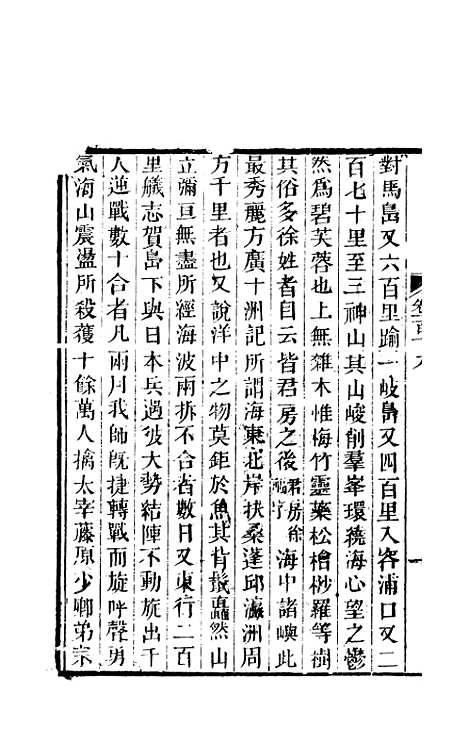 對馬島又六百里踰一岐島又四百里入容浦口又二
百七十里至三神山其山峻削羣峯環繞海心望之鬱
然爲碧芙蓉也上無雜木惟梅竹靈藥松檜桫羅等樹
其俗多徐姓者自云皆君房之後君房徐福字海中諸嶼此
最秀麗方廣十洲記所謂海東北岸扶桑蓬邱瀛洲周
方千里者也又說洋中之物莫鉅於魚其背鬣矗然山
立彌亘無盡所經海波兩拆不合者數日又東行二百
里艤志賀島下與日本兵遇彼大勢結陣不動旋出千
人逆戰數十合者凡兩月我師旣捷轉戰而旋呼聲勇
氣海山震盪所殺獲十餘萬人擒太宰藤原少卿弟宗
卷一百十九